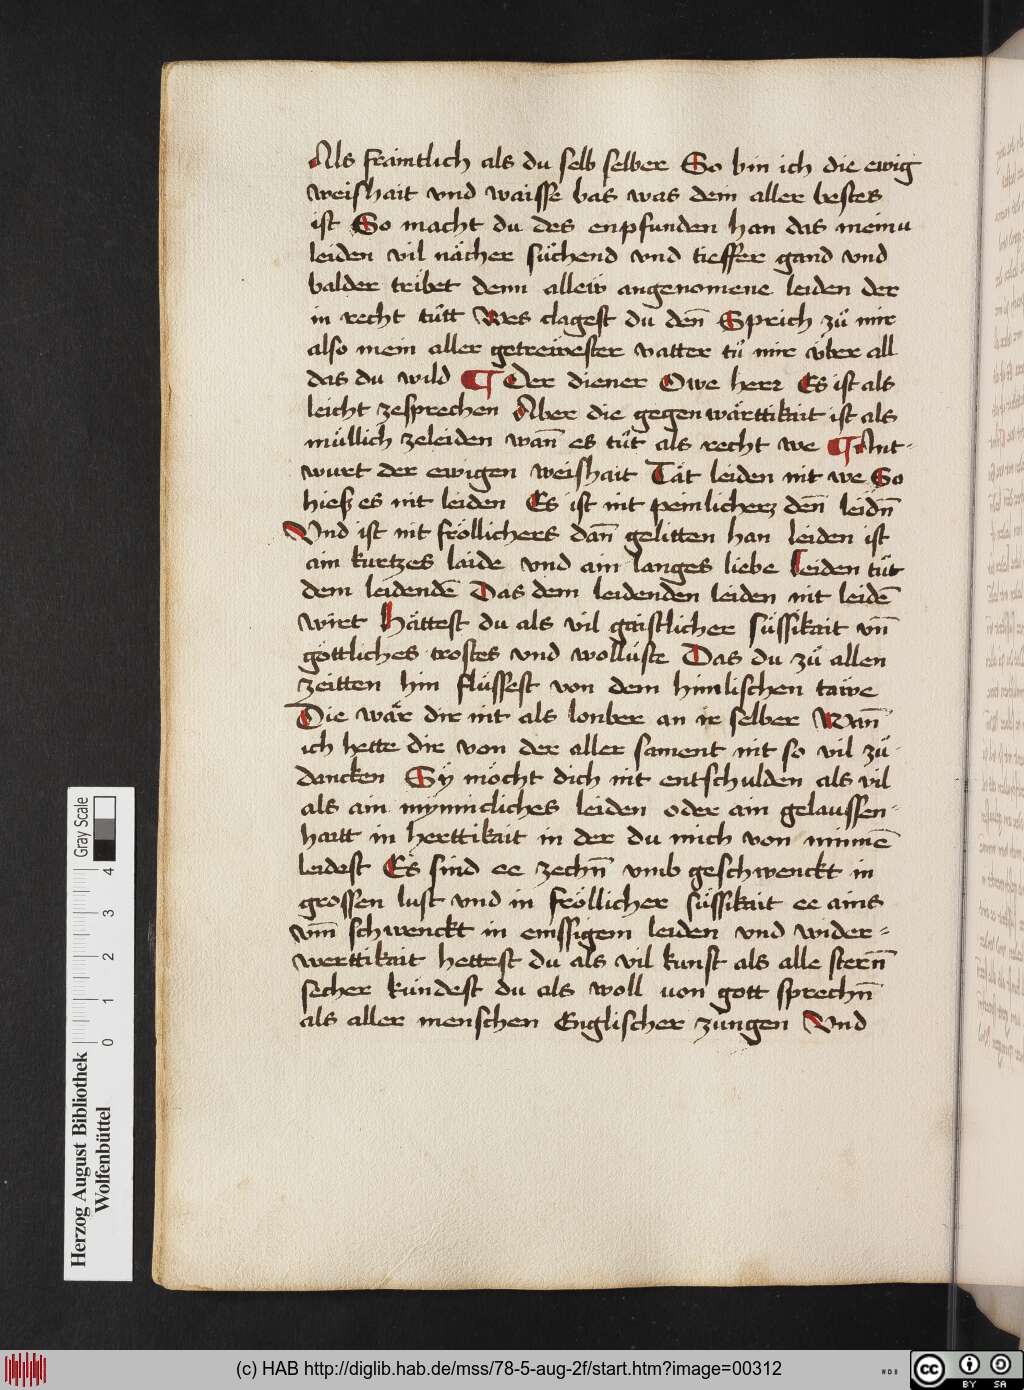 Als främtlich als du selb selber So bin ich die ewig
weishait vnd waisse bas was dem aller bestes
ist So macht du des enpfunden han das meinu
leiden vil nächer süchend vnd tieffer gand vnd
balder tribet denn allew angenomene leiden der
in recht tůtt Wes clagest du den̄ Sprich zů mir
also mein aller getreivester vatter tů mir über all
das du wild ¶ Der diener Owe herr Es ist als
leicht zesprechen Aber die gegenwärttikait ist als
müllich zeleiden wan̄ es tůt als recht we ¶ Ant-
wurt der ewigen weishait Tät leiden nit we So
hieß es nit leiden Es ist nit peinlicherz den̄ leidn̄
Vnd ist nit fröllichers dan̄ gelitten han leiden ist
ain kurtzes laide vnd ain langes liebe Leiden tůt
dem leidendē Das dem leidenden leiden nit leidē
wirt Hättest du als vil gaistlicher süssikait vn̄
göttliches trostes vnd wollüste Das du zů allen
zeitten hin flüssest von dem himlischen tawe
Die wär dir nit als lonber an ir selber Wan̄
ich hette dir von der aller sament nit so vil zů-
dancken Sÿ möcht dich nit entschulden als vil
als ain mynncliches leiden oder ain gelaussen-
haitt in herttikait in der du mich von minnē
leidest Es sind ee zechn̄ vmb geschwenckt in
grossen lust vnd in fröllicher süssikait ee ains
vm̄ schwenckt in emssigem leiden vnd wider-
werttikait hettest du als vil kunst als alle stern̄
secher kündest du als woll von gott sprechn̄
als aller menschen Englischer zungen Vnd
Herzog August Bibliothek
Wolfenbüttel
0 1 2 3 4
Gray Scale
(c) HAB http://diglib.hab.de/mss/78-5-aug-2f/start.htm?image=00312
WDB
cc BY SA